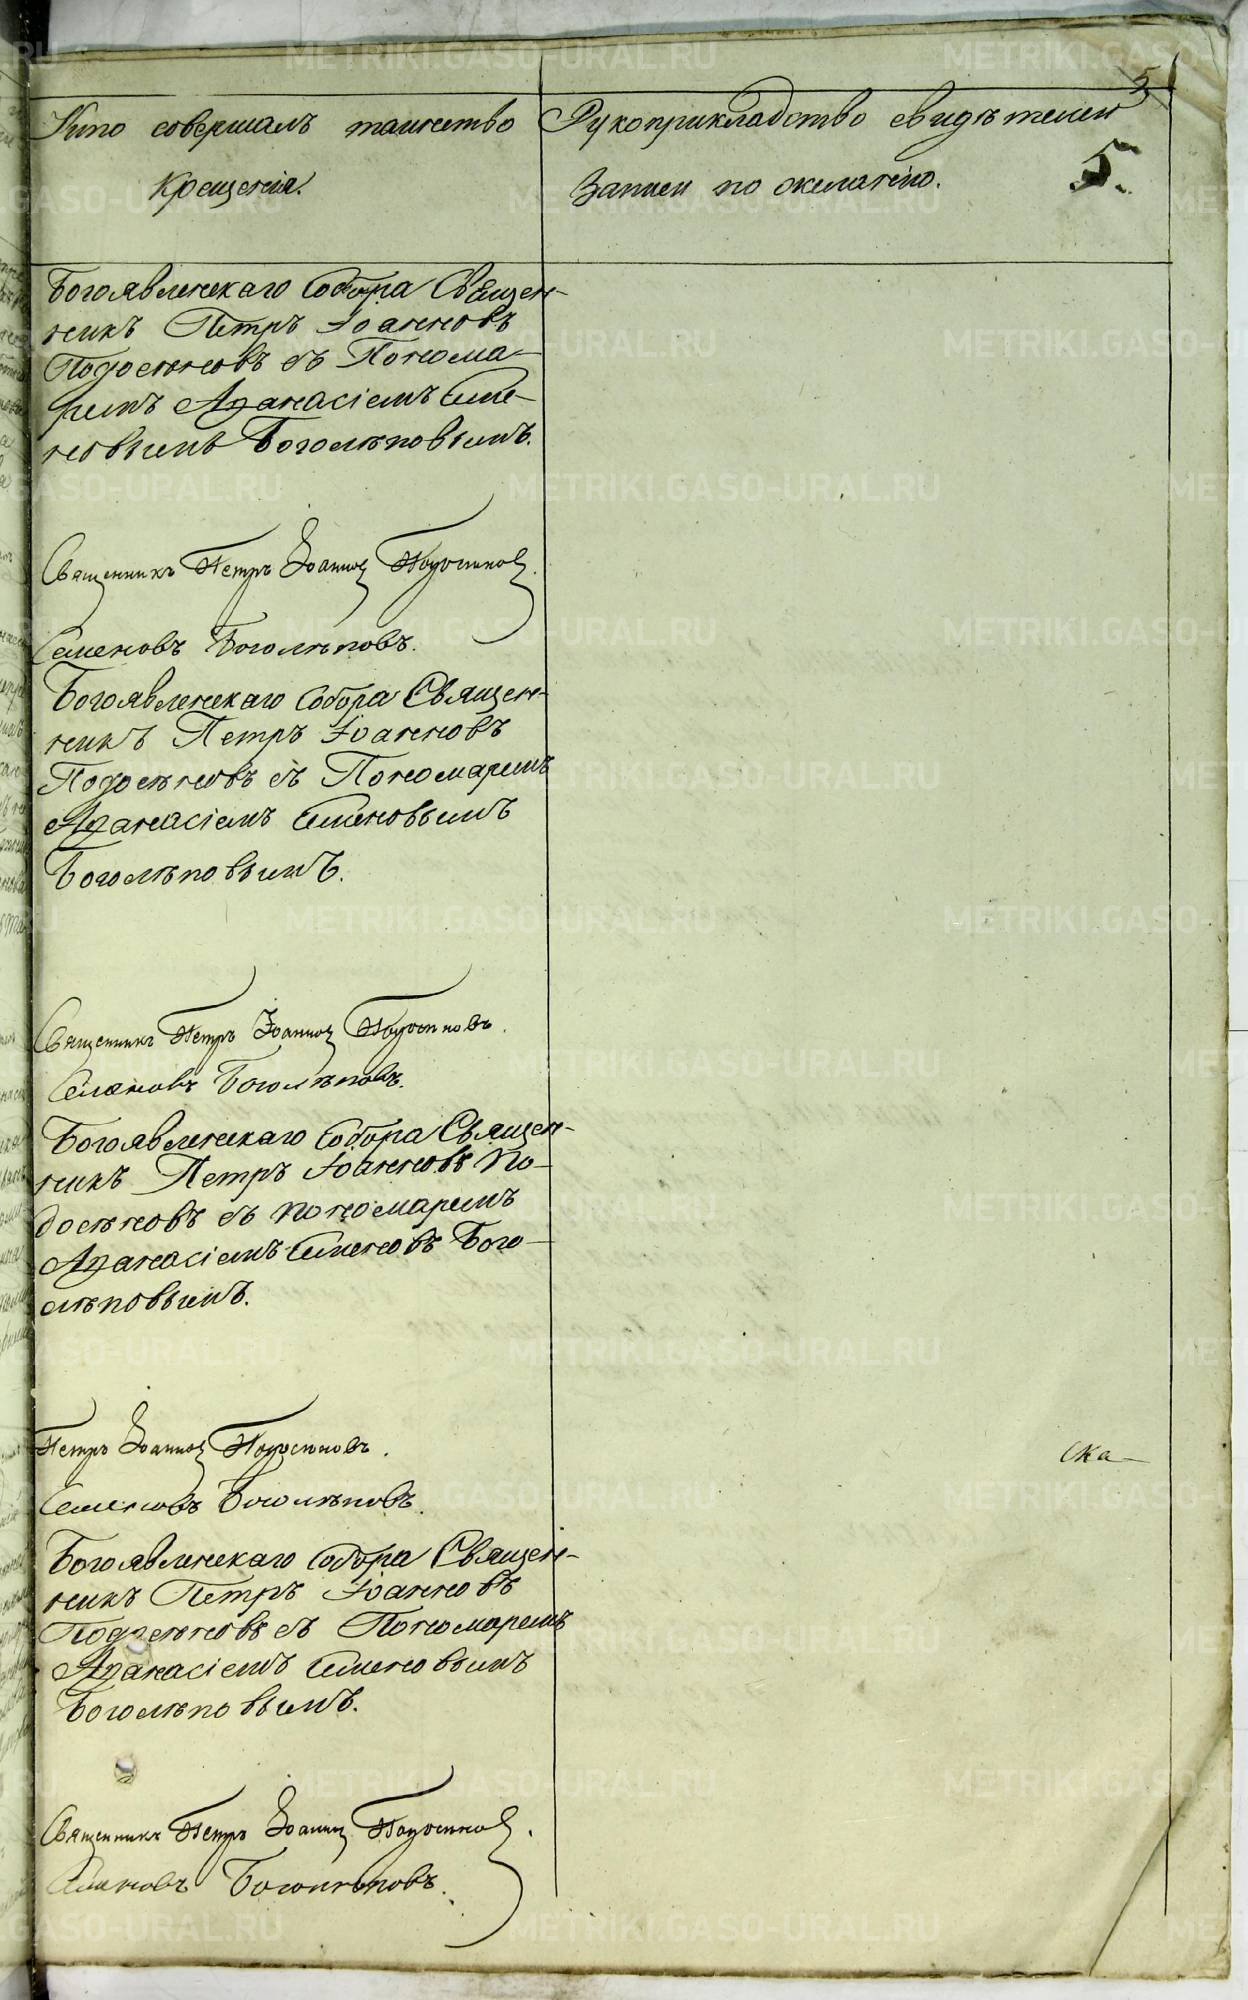 5
Кто совершалъ таинство
Крещенія.
Рукоприкладство свидѣтелей
Записи по желанію.
5.
Богоявленскаго Собора Священ-
никъ Петръ Іоанновъ
Подосеновъ съ Понома-
ремъ Аѳанасіемъ Семе-
новымъ Боголѣповымъ.
Священникъ Петръ Іоаннов Подосенов.
Семеновъ Боголѣповъ.
Богоявленскаго Собора Священ-
никъ Петръ Іоанновъ
Подосеновъ съ Пономаремъ
Аѳанасіемъ Семеновымъ
Боголѣповымъ.
Священникъ Петръ Іоаннов Подосеновъ.
Семеновъ Боголѣповъ.
Богоявленскаго Собора Священ-
никъ Петръ Іоанновъ По-
досеновъ съ пономаремъ
Аѳанасіемъ Семеновъ Бого-
лѣповымъ.
Петръ Іоаннов Подосеновъ.
Ска-
Семеновъ Боголѣповъ.
Богоявленскаго Собора Священ-
никъ Петръ Іоанновъ
Подосеновъ съ Пономаремъ
Аѳанасіемъ Семеновымъ
Боголѣповымъ.
Священникъ Петръ Іоаннов Подосенов.
Семеновъ Боголѣповъ.
METRIKI.GASO-URAL.RU